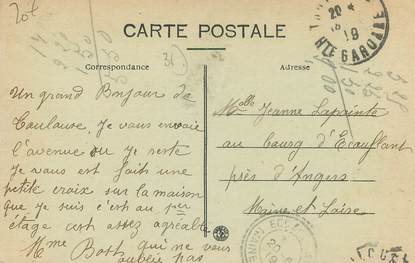 20f
CARTE POSTALE
31
Correspondance
Adresse
20 *
19
HTE GARONNE
Un grand Bonjour de
Toulouse, je vous envoie
l'avenue ou je reste
je vous est faits une
petite croix sur la maison
que je suis c'est au per
étage cest assez agréable
Mme Bost qui ne vous
oublie pas
Melle Jeanne Lapointe
au bourg d'Ecouflant
près d'Angers
Maine et Loire